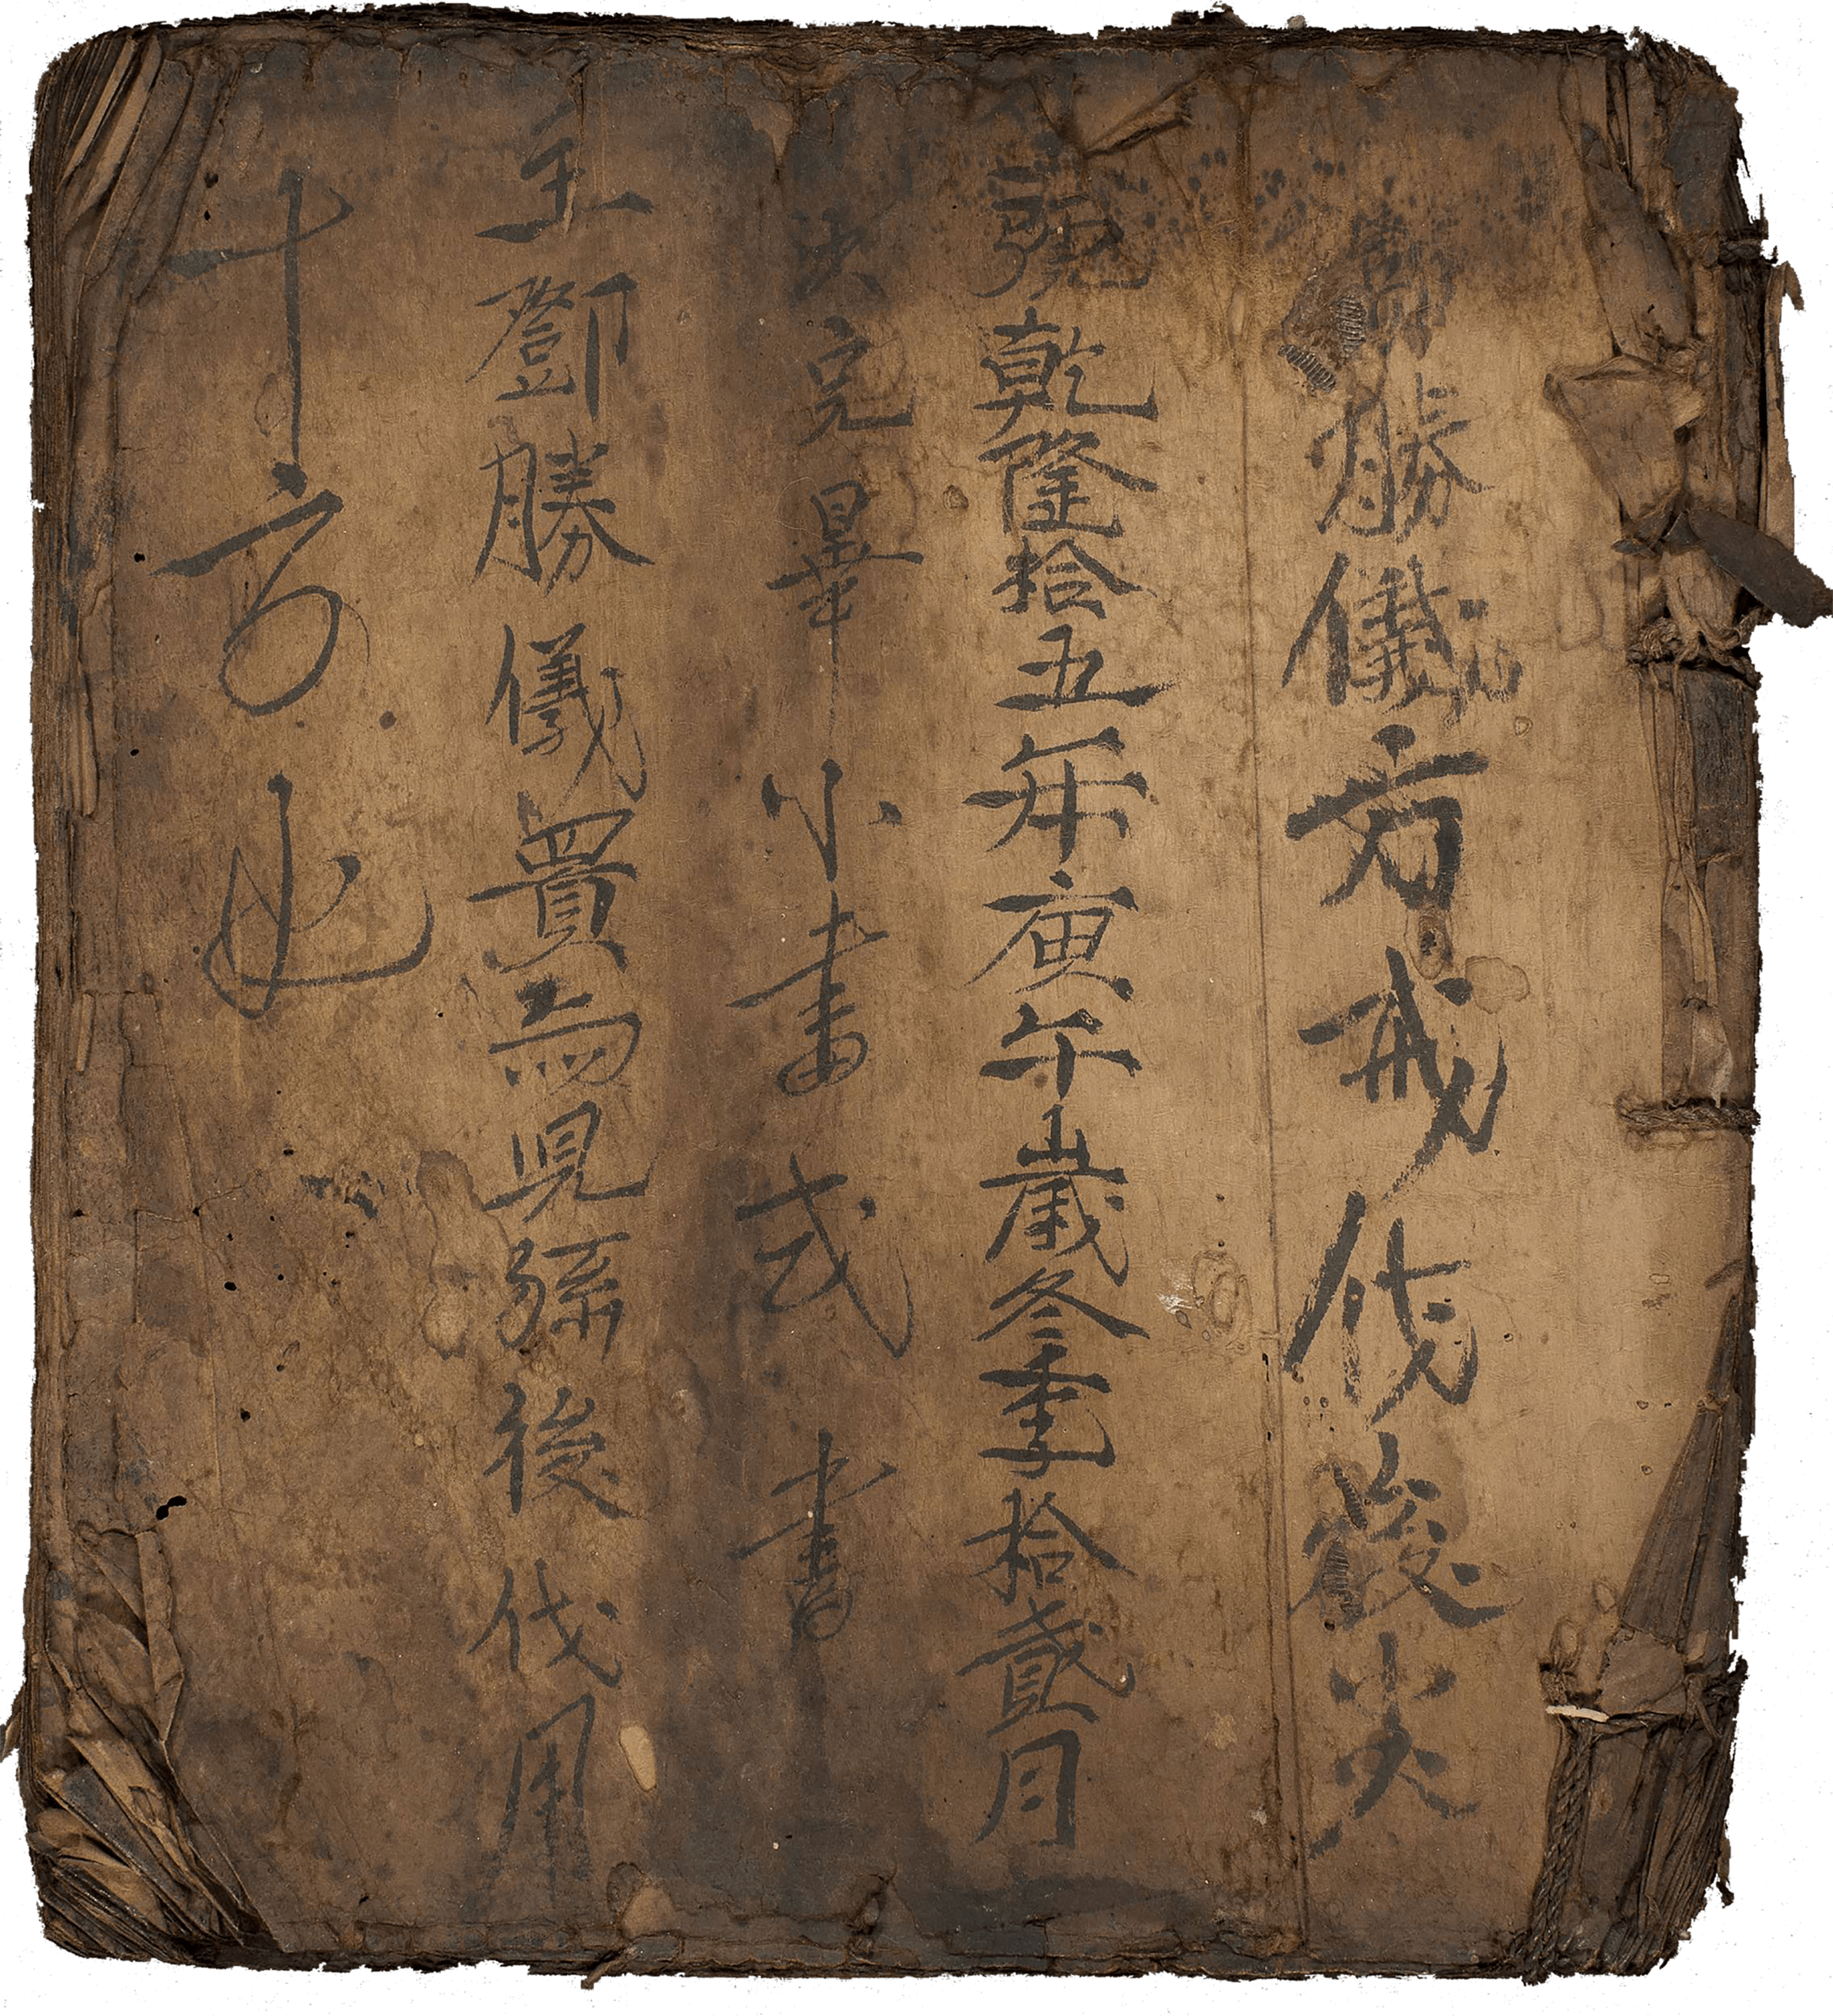 鄧勝儀方戒伐後尖
號乾隆拾五年庚午歲冬季拾貳月
完畢小書式書
主鄧勝儀置而見孫後伐用
十方也